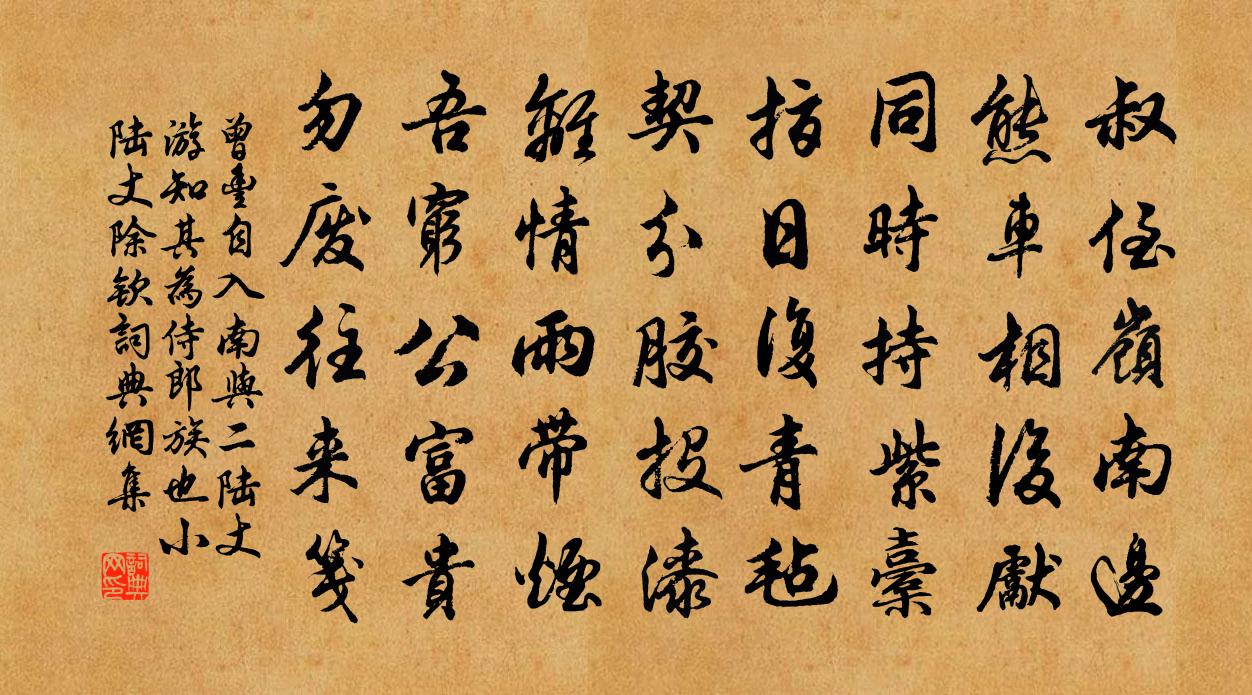 叔侄嶺南邊
熊車相後獻
同時持紫橐
指日復青毡
契分膠投漆
離情雨帶煙
吾窮公富貴
勿废往来箋
曾豐自入南與二陆丈
游知其為侍郎族也小
陆丈除欽詞典網集
詞典网印